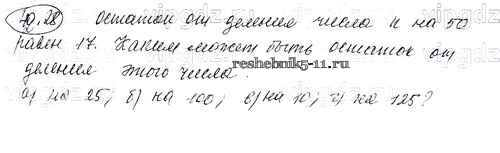 10.28 Остаток от деления числа n на 50
равен 17. Каким может быть остаток от
деления этого числа:
а) на 25; б) на 100; в) на 10; г) на 125?
reshebnik5-11.ru